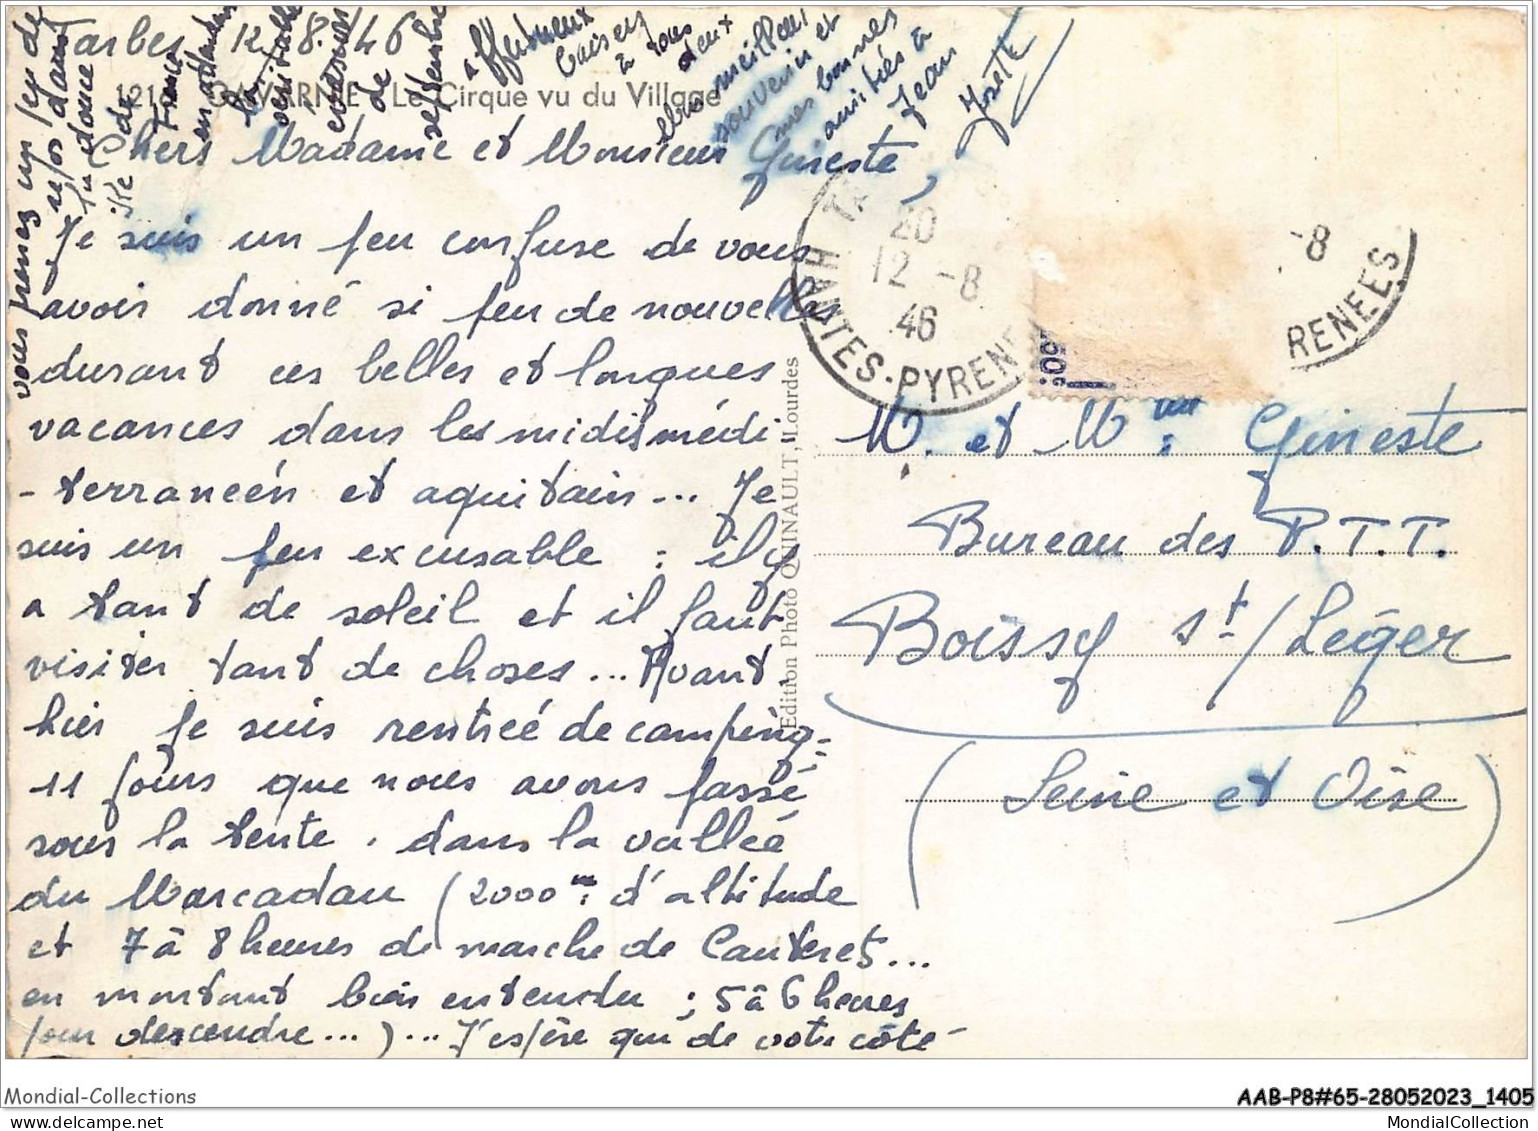 Tarbes 12.8.46
121 GAVARNIE - Le Cirque vu du Village
Chers Madame et Monsieur Gineste,
Je suis un peu confuse de vous
avoir donné si peu de nouvelles
durant ces belles et longues
vacances dans les midis médi
-terranéen et aquitain... Je
suis un peu excusable : il y
a tant de soleil et il faut
visiter tant de choses... Avant.
hier je suis rentrée de camping -
11 jours que nous avons passé
sous la tente. dans la vallée
du Marcadau (2000m. d'altitude
et 7 à 8 heures de marche de Cauterets...
en montant bien entendu ; 5 à 6 heures
pour descendre...)... J'espère que de votre côté
vous prenez un peu de
repos dans
la douce
Ile de
France
en attendant
la
véritable
de
septembre
affectueux
baisers
à tous
deux
meilleur
souvenir et
mes bonnes
amitiés à
Jean
Josette
20
12 -8
46
HAUTES-PYRENE
-8
RENEES
50c
Edition Photo QUINAULT, Lourdes
M. et Mme Gineste
Bureau des P.T.T.
Boissy St/Léger
(Seine et Oise)
Mondial-Collections
AAB-P8#65-28052023_1405
MondialCollection